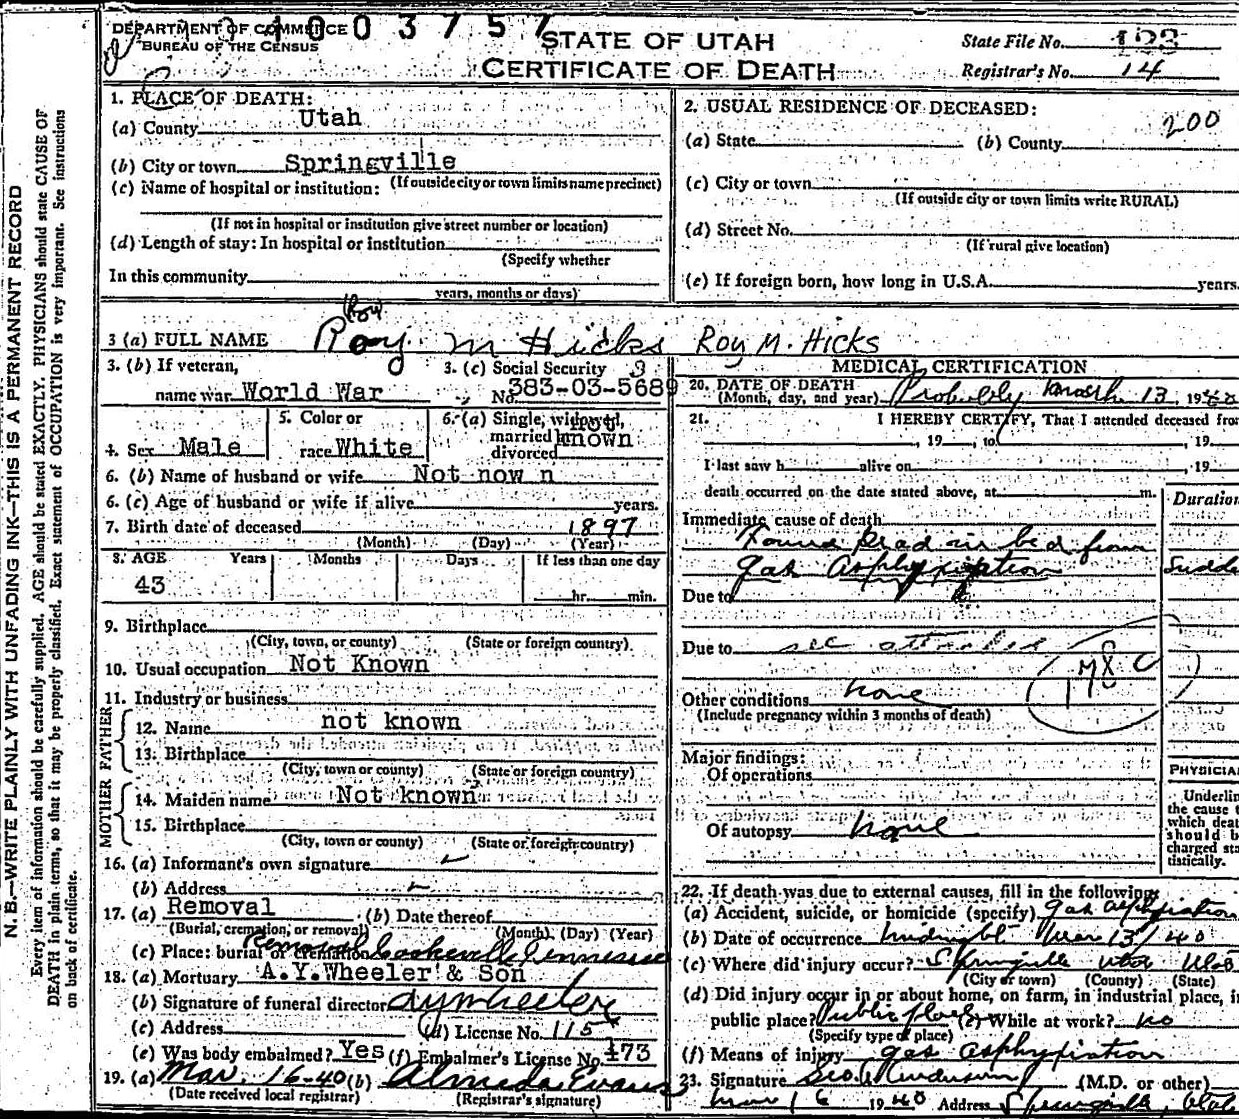 1003757
DEPARTMENT OF COMMERCE
BUREAU OF THE CENSUS
STATE OF UTAH
CERTIFICATE OF DEATH
State File No. 123
Registrar's No. 14
N.B.—WRITE PLAINLY WITH UNFADING INK—THIS IS A PERMANENT RECORD
Every item of information should be carefully supplied. AGE should be stated EXACTLY. PHYSICIANS should state CAUSE OF
DEATH in plain terms, so that it may be properly classified. Exact statement of OCCUPATION is very important. See instructions
on back of certificate.
1. PLACE OF DEATH:
(a) County Utah
(b) City or town Springville
(If outside city or town limits name precinct)
(c) Name of hospital or institution:
(If not in hospital or institution give street number or location)
(d) Length of stay: In hospital or institution
(Specify whether
In this community
years, months or days)
2. USUAL RESIDENCE OF DECEASED:
200
(a) State (b) County
(c) City or town
(If outside city or town limits write RURAL)
(d) Street No.
(If rural give location)
(e) If foreign born, how long in U.S.A. years.
(Roy)
3 (a) FULL NAME Roy M Hicks Roy M. Hicks
3. (b) If veteran,
name war World War
3. (c) Social Security
No. 383-03-5689
3
4. Sex Male
5. Color or
race White
6. (a) Single, widowed,
married
divorced
not
known
6. (b) Name of husband or wife Not now n
6. (c) Age of husband or wife if alive years.
7. Birth date of deceased 1897
(Month) (Day) (Year)
8. AGE Years Months Days If less than one day
43
hr. min.
9. Birthplace
(City, town, or county) (State or foreign country)
10. Usual occupation Not Known
11. Industry or business
FATHER
12. Name not known
13. Birthplace
(City, town or county) (State or foreign country)
MOTHER
14. Maiden name Not known
15. Birthplace
(City, town or county) (State or foreign country)
16. (a) Informant's own signature
(b) Address
17. (a) Removal (b) Date thereof
(Burial, cremation, or removal) (Month) (Day) (Year)
(c) Place: burial or cremation Removal Cookeville Tennessee
18. (a) Mortuary A.Y.Wheeler & Son
(b) Signature of funeral director AYWheeler
(c) Address (d) License No. 115
(e) Was body embalmed? Yes (f) Embalmer's License No. 173
19. (a) Mar. 16-40 (b) Almeda Evans
(Date received local registrar) (Registrar's signature)
MEDICAL CERTIFICATION
20. DATE OF DEATH
(Month, day, and year) Probably March 13, 1940
21. I HEREBY CERTIFY, That I attended deceased from
, 19 , to , 19
I last saw h alive on , 19
death occurred on the date stated above, at m.
Duration
Immediate cause of death
Found dead in bed from
gas Asphyxiation
Due to
Due to see attached
178 C
Other conditions none
(Include pregnancy within 3 months of death)
Major findings:
Of operations
Of autopsy none
PHYSICIA
Underlin
the cause t
which deat
should b
charged sta
tistically.
22. If death was due to external causes, fill in the following:
(a) Accident, suicide, or homicide (specify) gas asphyxiation
(b) Date of occurrence midnight Mar 13/40
(c) Where did injury occur? Springville Utah Utah
(City or town) (County) (State)
(d) Did injury occur in or about home, on farm, in industrial place, i
public place? Public place (e) While at work? no
(Specify type of place)
(f) Means of injury gas asphyxiation
23. Signature (M.D. or other)
Mar 16 1940 Address Springville, Utah